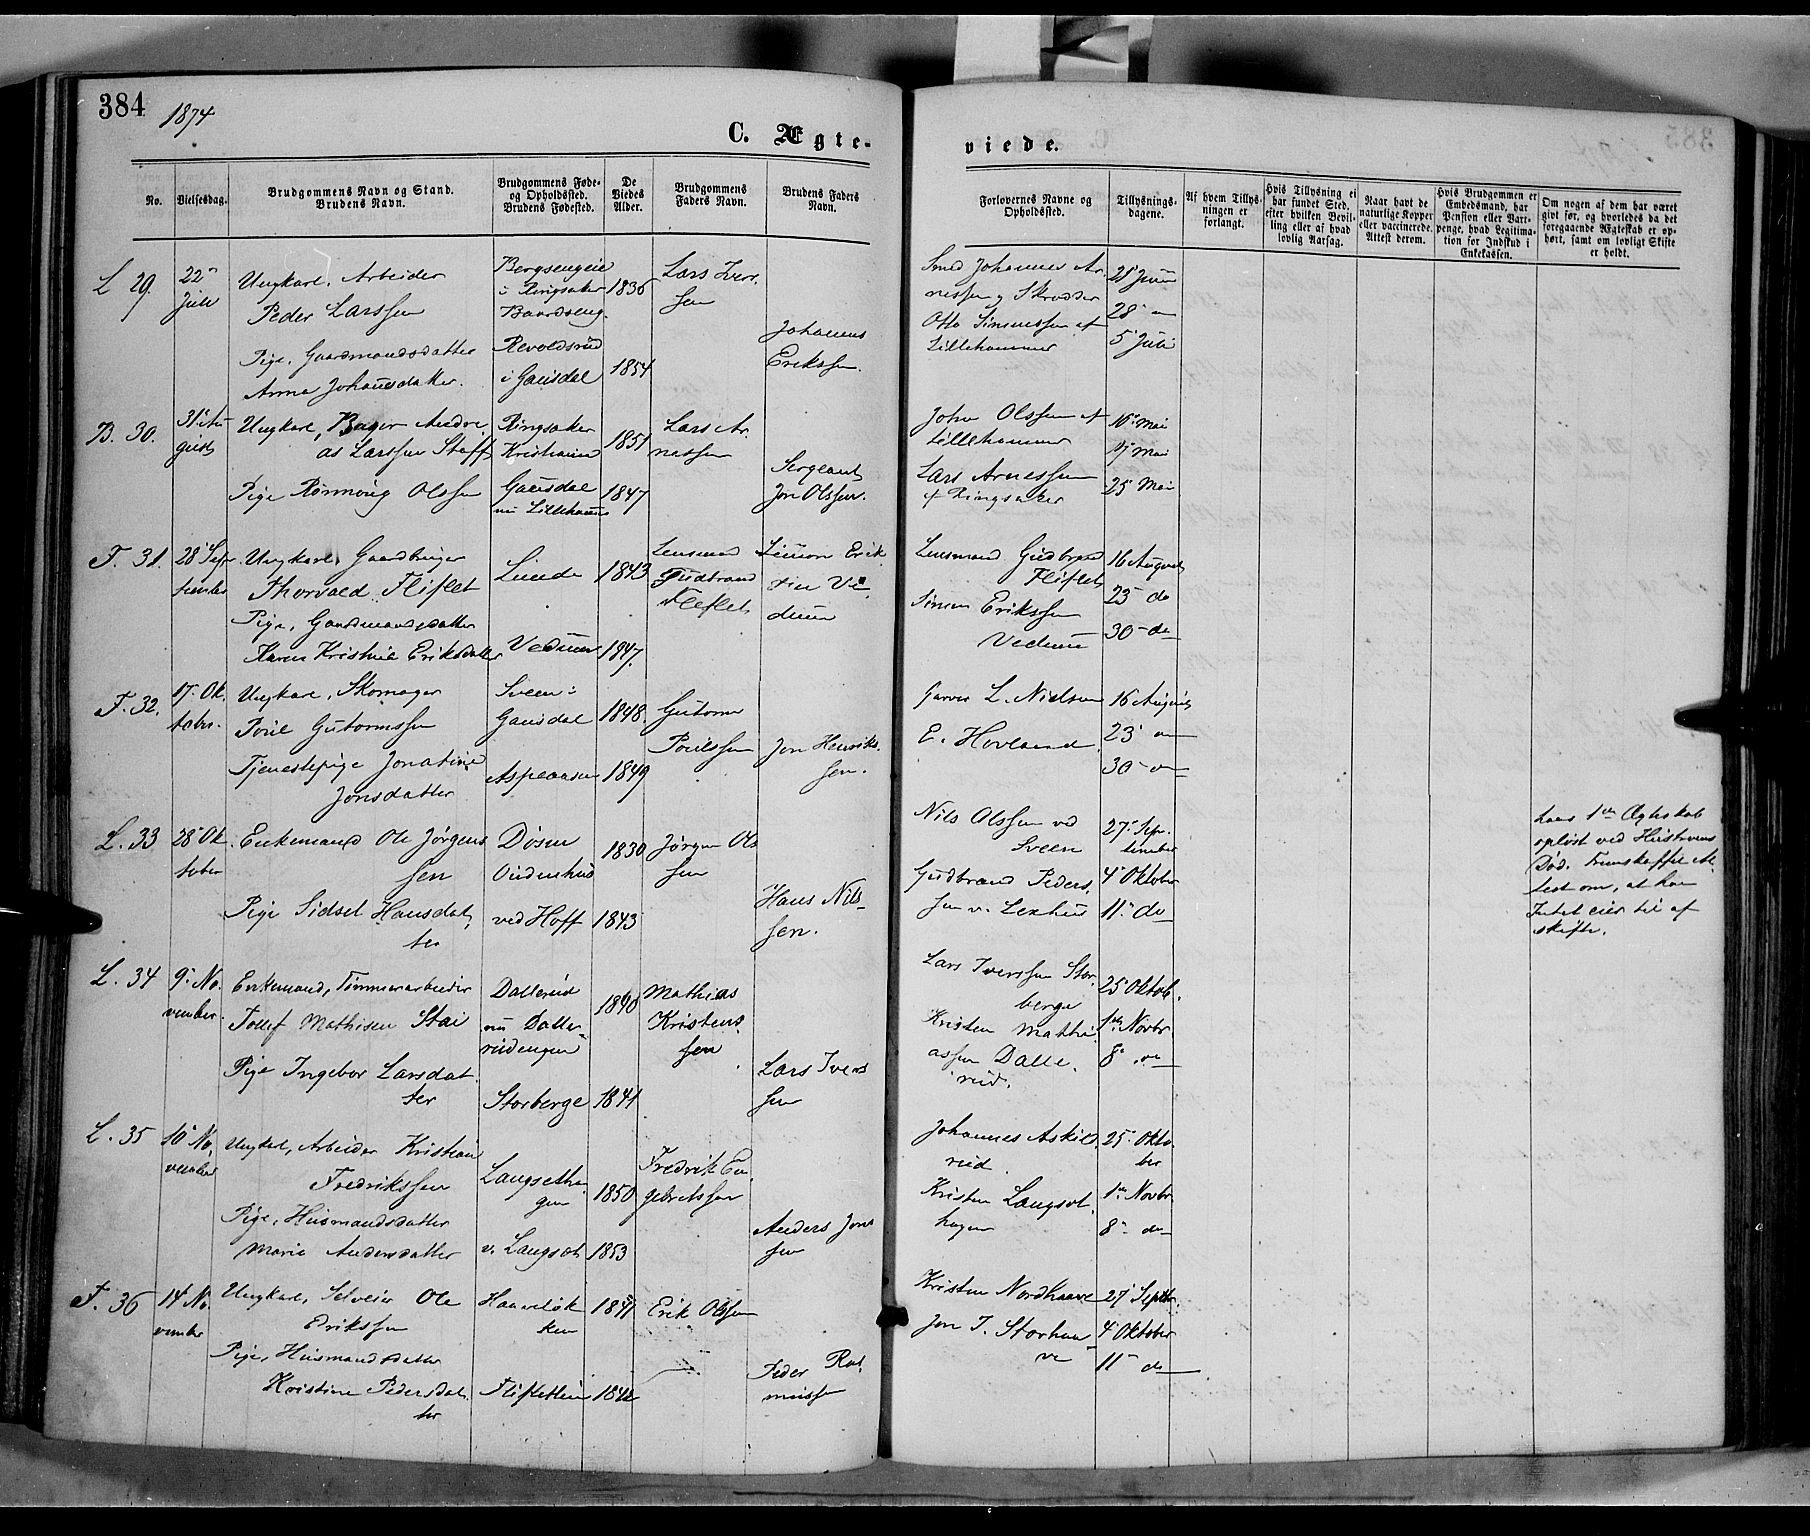 384
1874
C. Ægte-
viede.
No.
Vielsesdag.
Brudgommens Navn og Stand.
Brudens Navn.
Brudgommens Føde-
og Opholdssted.
Brudens Fødested.
De
Viedes
Alder.
Brudgommens
Faders Navn.
Brudens Faders
Navn.
Forlovernes Navne og
Opholdssted.
Tillysnings-
dagene.
Af hvem Tillys-
ningen er
forlangt.
Hvis Tillysning ei
har fundet Sted,
efter hvilken Bevil-
ling eller af hvad
lovlig Aarsag.
Naar havt de
naturlige Kopper
eller vaccinerede.
Attest derom.
Hvis Brudgommen er
Embedsmand, har
Pension eller Vart-
penge, hvad Legitima-
tion for Indskud i
Enkekassen.
Om nogen af dem har været
givt før, og hvorledes da det
foregaaende Ægteskab er op-
hørt, samt om lovligt Skifte
er holdt.
L 29.
22
Juli
Ungkarl, Arbeider
Peder Larssen
Pige, Gaardmandsdatter
Anna Johannesdatter.
Bergsengeie
i Ringsaker
Baardseng.
Revoldsrud
i Gausdal
1836
1854
Lars Iver
sen
Johannes
Erikssen.
Smed Johannes Ar
nessen
Otto Simenssen af
Lillehammer
21 Juni
28
5 Juli
B. 30.
31 Au
gust
Ungkarl, Bager Andre
as Larssen Staff
Pige Rønnoug Olssen
Ringsaker
Gausdal
nu Lillehammer
1851
1847
Lars Ar
nessen
Sergeant
Jon Olssen.
John Olssen af
Lillehammer
Lars Arnessen
af Ringsaker
10 Mai
17 Mai
25 Mai
F. 31.
28 Sep
tember
Ungkarl, Gaardbruger
Thorvald Fliflet
Pige, Gaardmandsdatter
Karen Kristine Eriksdatter
Linde
Vedum
1843
1847.
Lensmand
Gudbrand
Fliflet
Simon Erik
sen Ve
dum
Lensmand Gudbrand
Fliflet
Simen Erikssen
Vedum
16 August
23 do
30 do
F. 32.
17. Ok
tober.
Ungkarl, Skomager
Poul Gutormssen
Tjenestepige Jonatine
Jonsdatter
Sveen i
Gausdal
Aspeaasen
1848.
1849
Gutorm
Poulssen
Jon Henriks
sen.
Garver L. Nielsen
E. Hovland
16 August
23
30
L. 33
28 Ok
tober
Enkemand Ole Jørgens
sen
Pige Sidsel Hansdat
ter
Døsen
ved Hoff
1830
1843
Jørgen Ols
sen
Hans Nils
sen.
Nils Olssen ved
Sveen
Gudbrand Peders
sen v. Lexhus
27 Sep
tember
4 Oktober
11 do
hans 1ste Ægteskab
opløst ved Hustruens
Død. Fremskaffet At
test om, at han
Intet eier til af
skifte.
L. 34
9 No
vember
Enkemand, Tømmerarbeider
Tollef Mathisen Stai
Pige Ingebor Larsdat
ter
Dallerud
nu Daller
rudengen
Storberge
1840
1841
Mathias
Kristens
sen
Lars Ivers
sen
Lars Iverssen Stor
berge
Kristen Mathi
assen Dalle
rud.
25 Oktob.
1ste Novbr
8
L. 35
10 No
vember
Ungkarl, Arbeider Kristian
Fredrikssen
Pige, Husmandsdatter
Marie Andersdatter
Langsetha
gen
v. Langset
1850
1853
Fredrik En
gebretssen
Anders Jons
sen
Johannes Askils
rud.
Kristen Langset
hagen
25 Okto
ber
1ste Novbr
8 do
F. 36
14 No
vember
Ungkarl, Selveier Ole
Erikssen
Pige, Husmandsdatter
Kristine Pedersdat
ter
Haaveløk
ken
Flifleteie
1841
1842
Erik Olssen
Peder Ras
mussen
Kristen Nordhaave
Jon T. Storhaa
ve
27 Septbr.
4 Oktober
11 do
385